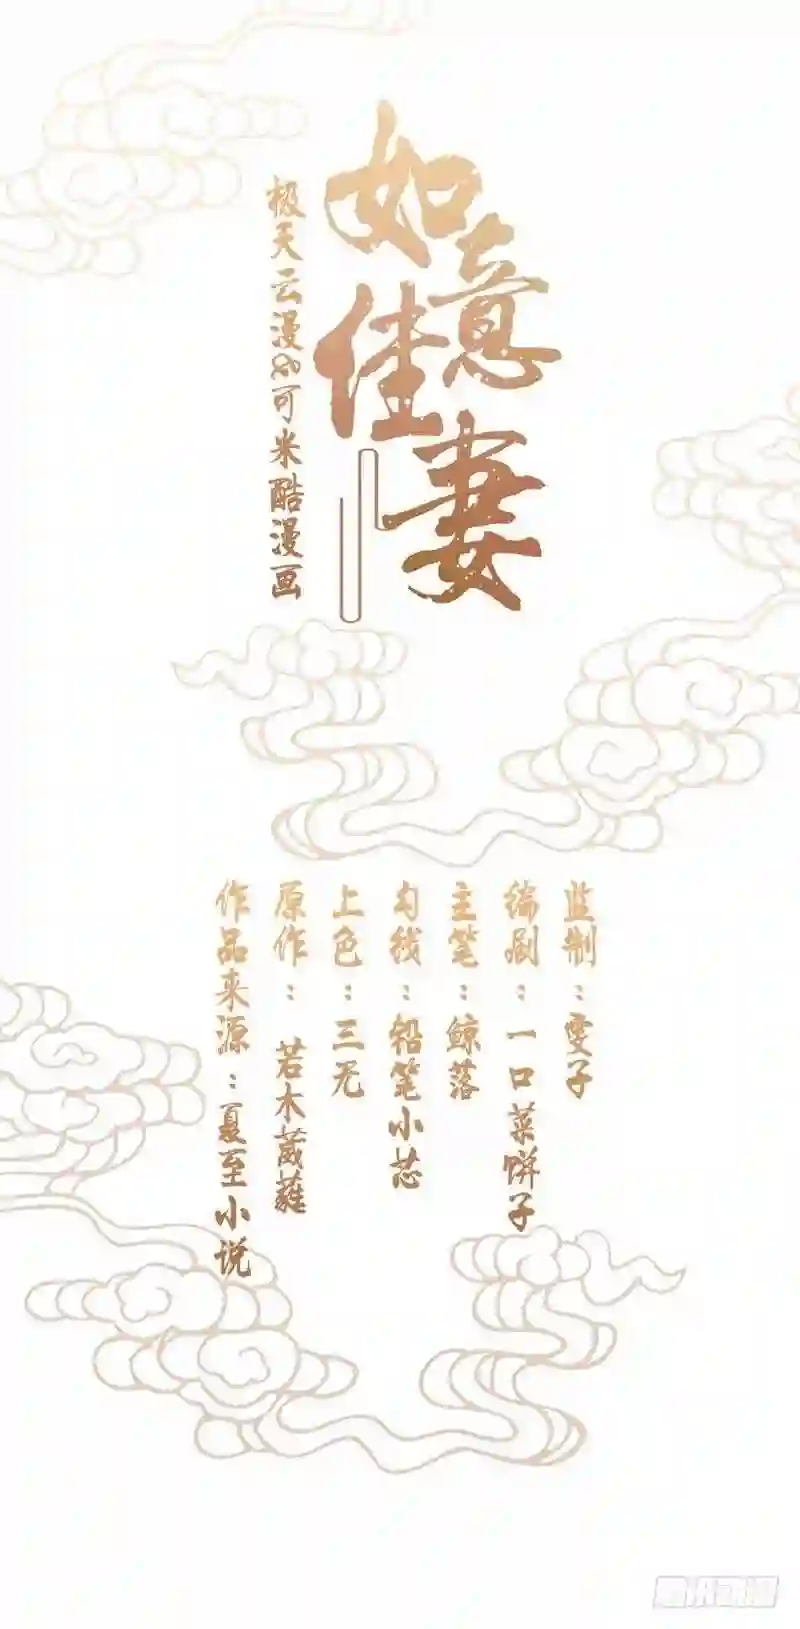 如意佳妻
极天云漫&可米酷漫画
监制：雯子
编剧：一口菜饼子
主笔：鲸落
勾线：铅笔小芯
上色：三无
原作：若木葳蕤
作品来源：夏至小说
腾讯动漫